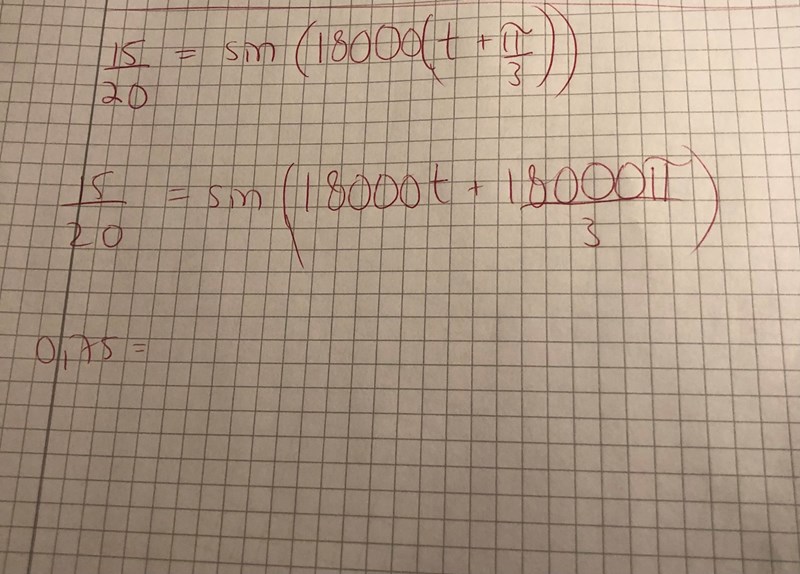 15/20 = sin (18000(t + π/3))
15/20 = sin (18000t + 18000π/3)
0,75 =